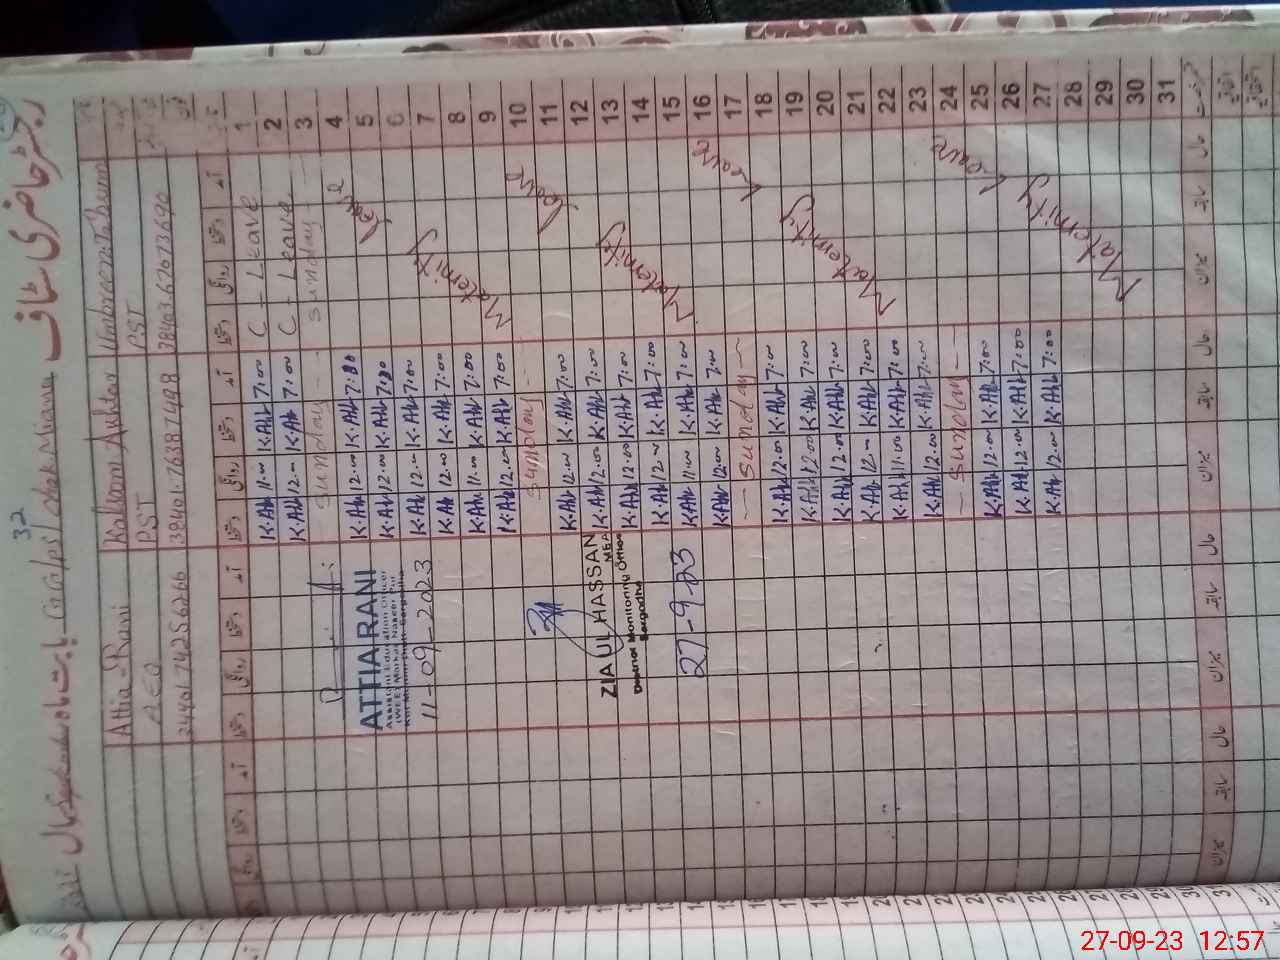 32
رجسٹر حاضری سٹاف
بابت ماہ September سال
Attia Rani Kalsoom Akhtar Umbreen Tabsum
AEO PST PST
38401-7638749-8 38403-6767369-0
1 K.Akh 11:00 K.Akh 7:00 C - Leave
2 K.Akh 12:00 K.Akh 7:00 C - Leave
3 Sunday Sunday
4 K.Akh 12:00 K.Akh 7:00
5 K.Akh 12:00 K.Akh 7:00
6 K.Akh 12:00 K.Akh 7:00
7 K.Akh 12:00 K.Akh 7:00
8 K.Akh 11:00 K.Akh 7:00
9 K.Akh 12:00 K.Akh 7:00
10 Sunday
11 K.Akh 12:00 K.Akh 7:00
12 K.Akh 12:00 K.Akh 7:00
13 K.Akh 12:00 K.Akh 7:00
14 K.Akh 12:00 K.Akh 7:00
15 K.Akh 11:00 K.Akh 7:00
16 K.Akh 12:00 K.Akh 7:00
17 Sunday
18 K.Akh 12:00 K.Akh 7:00
19 K.Akh 12:00 K.Akh 7:00
20 K.Akh 12:00 K.Akh 7:00
21 K.Akh 12:00 K.Akh 7:00
22 K.Akh 11:00 K.Akh 7:00
23 K.Akh 12:00 K.Akh 7:00
24 Sunday
25 K.Akh 12:00 K.Akh 7:00
26 K.Akh 12:00 K.Akh 7:00
27 K.Akh 12:00 K.Akh 7:00
28
29
30
31
Maternity Leave
Maternity Leave
Maternity Leave
Maternity Leave
ATTIA RANI
Assistant Education Officer
11-09-2023
ZIA UL HASSAN
MEA
District Monitoring Office
Sargodha
27-9-23
27-09-23 12:57